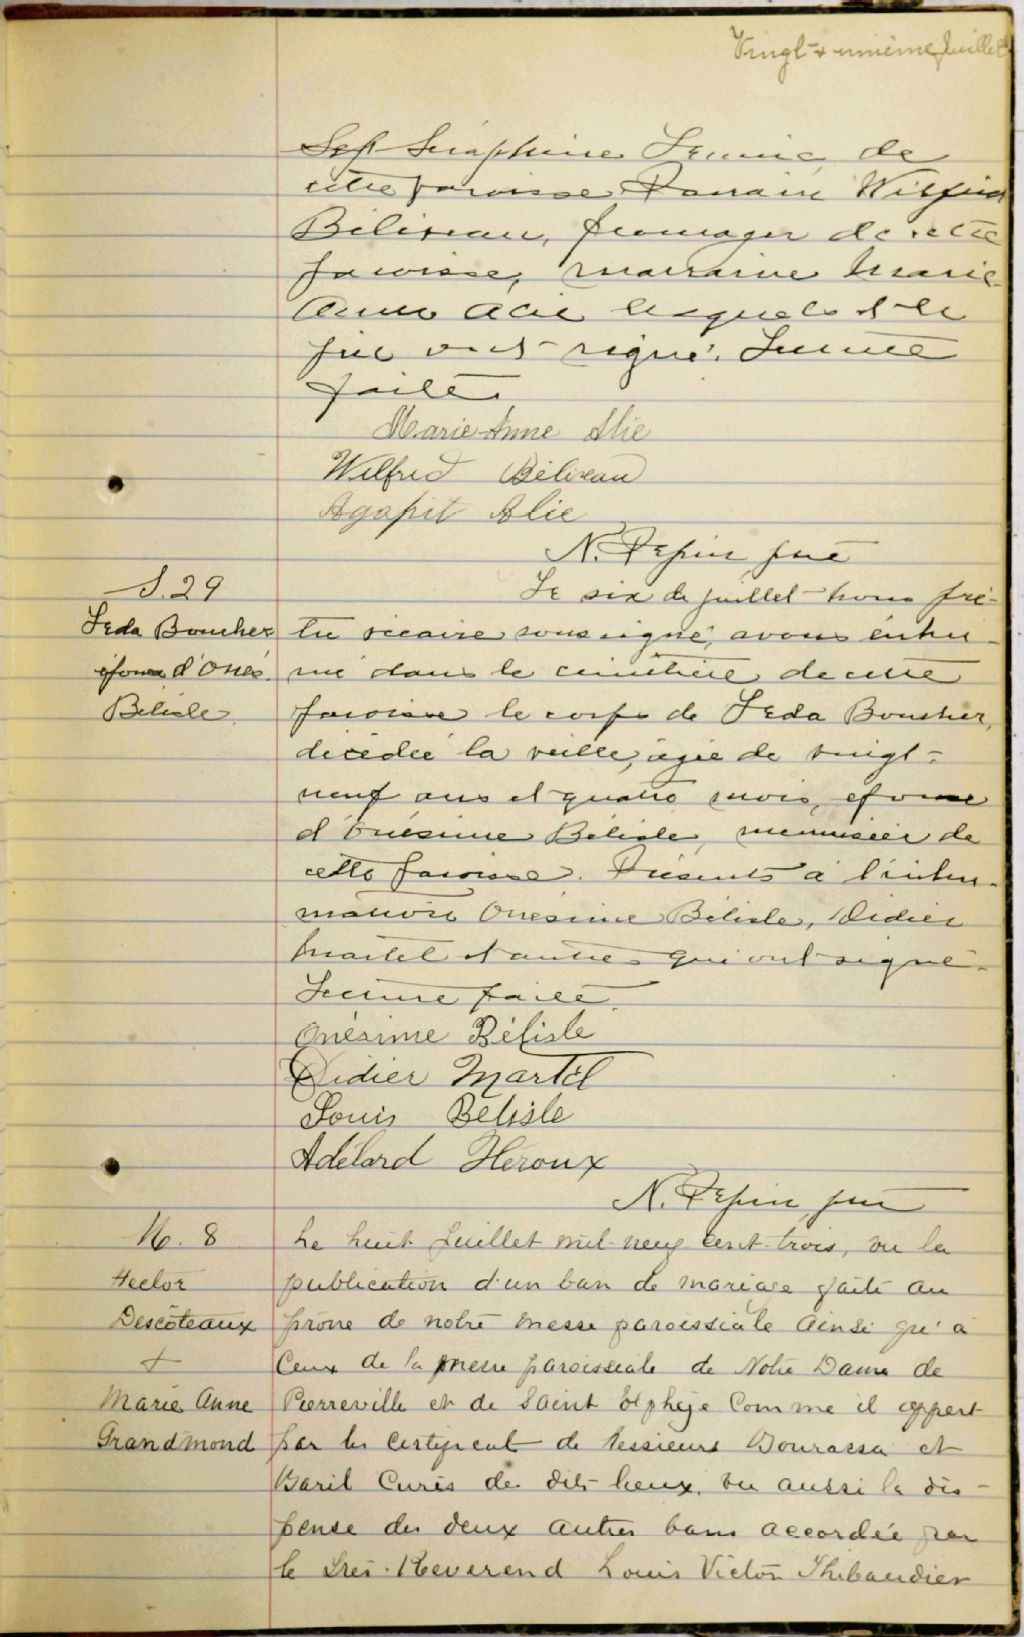 Vingt & unième feuillet
Séraphine de
cette paroisse Parrain Wilfrid
Béliveau, fromager de cette
paroisse, marraine Marie
Anne Alie lesquels & le
ont signé. Lecture
faite
Marie-Anne Alie
Wilfrid Béliveau
Agapit Alie
N. Pepin ptre
S. 29
Le six de juillet nous prê-
Leda Boucher
tre vicaire soussigné, avons inhu-
épouse d'Onés.
mé dans le cimetière de cette
Belisle
paroisse le corps de Leda Boucher,
décédée la veille, agée de vingt-
neuf ans et quatre mois, épouse
d'Onésime Bélisle, menuisier de
cette paroisse. Présents à l'inhu-
mation Onésime Bélisle, Didier
Martel et autres qui ont signé.
Lecture faite.
Onésime Bélisle
Didier Martel
Louis Bélisle
Adélard Héroux
N. Pepin ptre
M. 8
Le huit Juillet mil-neuf cent-trois, vu la
Hector
publication d'un ban de mariage faite au
Descôteaux
prône de notre messe paroissiale ainsi qu'à
+
Ceux de la messe paroissiale de Notre Dame de
Marie Anne
Pierreville et de Saint Elphège Comme il appert
Grandmond
par les Certificat de Messieurs Bourassa et
Baril Curés des dits-lieux, vu aussi la dis-
pense des deux autres bans accordée par
le Très-Reverend Louis Victor Thibaudier